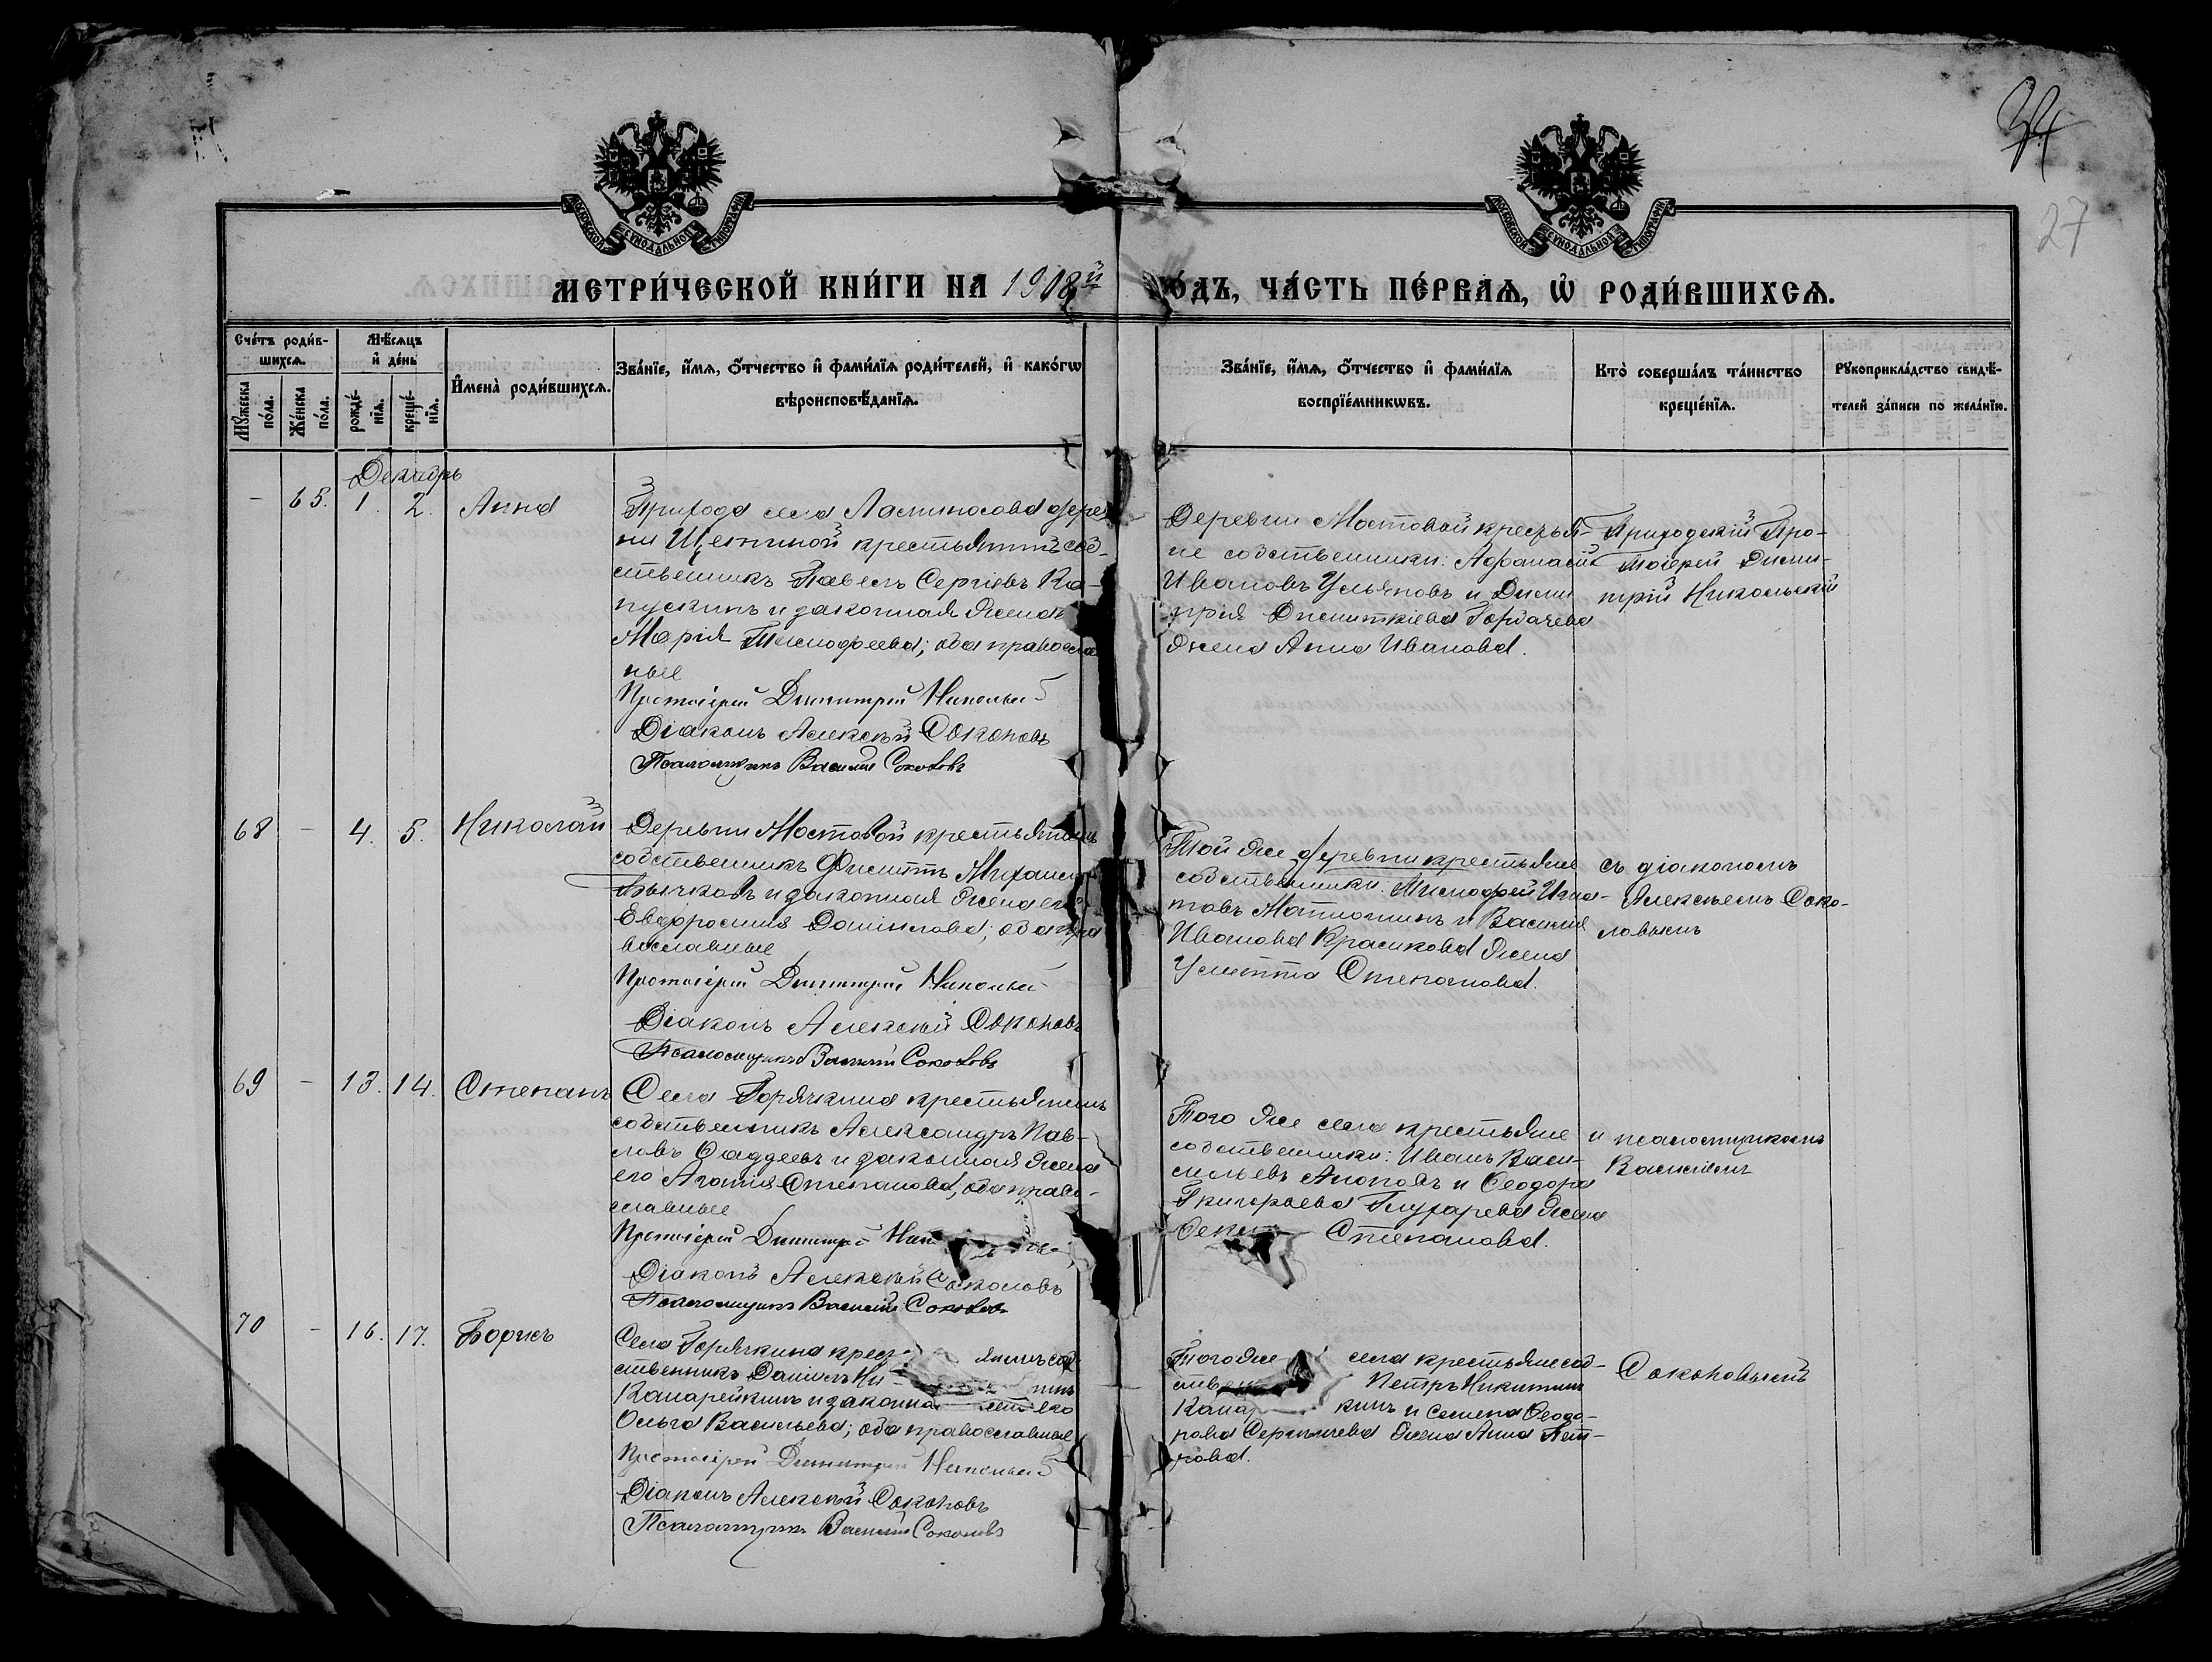 34
27
МОСКОВСКОЙ СѴНОДАЛЬНОЙ ТИПОГРАФІИ
МОСКОВСКОЙ СѴНОДАЛЬНОЙ ТИПОГРАФІИ
МЕТРИ́ЧЕСКОЙ КНИ́ГИ НА 1908й
О́ДЪ, ЧА́СТЬ ПЕ́РВАѦ, Ѡ҆ РОДИ́ВШИХСѦ.
Сче́тъ роди́в-
шихсѧ.
Мꙋ́жеска по́ла.
Же́нска по́ла.
Мѣ́сѧцъ
и҆ де́нь
рожде́-
нїѧ.
креще́-
нїѧ.
И҆мена̀ роди́вшихсѧ.
Зва́нїе, и҆́мѧ, ѻ҆́тчество и҆ фами́лїѧ роди́телей, и҆ како́гѡ
вѣроисповѣ́данїѧ.
Зва́нїе, и҆́мѧ, ѻ҆́тчество и҆ фами́лїѧ
воспрїе́мникѡвъ.
Кто̀ соверша́лъ та́инство
креще́нїѧ.
Рꙋкоприкла́дство свидѣ́-
телей за́писи по жела́нїю.
Декабрь
- 65. 1. 2. Анна
Прихода села Ласиносова дерев
ни Щетиной крестьянинъ соб-
ственникъ Павелъ Сергіевъ Ка-
пускинъ и законная жена
Марія Тимофеева; оба правосла
ные
Протоіерей Димитрій Никольскій
Діаконъ Алексѣй Соколовъ
Псаломщикъ Василій Соколовъ
Деревни Мостовой крестья-
не собственники: Афанасій
Ивановъ Ульяновъ и Дими
трія Димитріева Горбачева
жена Анна Иванова.
Приходскій Про-
тоіерей Дими-
трій Никольскій
68 - 4. 5. Николай
Деревни Мостовой крестьянинъ
собственникъ Филиппъ Михаиловъ
Бычковъ и законная жена его
Евфросинія Даніилова; оба пра
вославные
Протоіерей Димитрій Никольскій
Діаконъ Алексѣй Соколовъ
Псаломщикъ Василій Соколовъ
Той же деревни крестьяне
собственники: Тимофей Игна-
товъ Матюшинъ и Василія
Иванова Красикова жена
Улитта Степанова.
съ діакономъ
Алексѣемъ Соко-
ловымъ
69 - 13. 14. Степанъ
Села Горячкина крестьянинъ
собственникъ Александръ Пав-
ловъ Ѳаддеевъ и законная жена
его Агаѳія Степанова, оба право-
славные
Протоіерей Димитрій
Діаконъ Алексѣй Соколовъ
Псаломщикъ Василій Соколовъ
Того же села крестьяне
собственники: Иванъ Васи-
льевъ Агаповъ и Ѳеодора
Григорьева Глухарева жена
Степанова.
и псаломщикомъ
Василіемъ
70 - 16. 17. Борисъ
Села Горячкина крес янинъ соб
ственникъ Даніилъ Ни
Канарейкинъ и законная его
Ольга Васильева; оба православные
Протоіерей Димитрій Никольскій
Діаконъ Алексѣй Соколовъ
Псаломщикъ Василій Соколовъ
Того же села крестьяне соб-
ств Петръ Никитинъ
Кана кинъ и Семена Ѳеодо-
рова Сергачева жена Анна Пет-
рова.
Соколовымъ